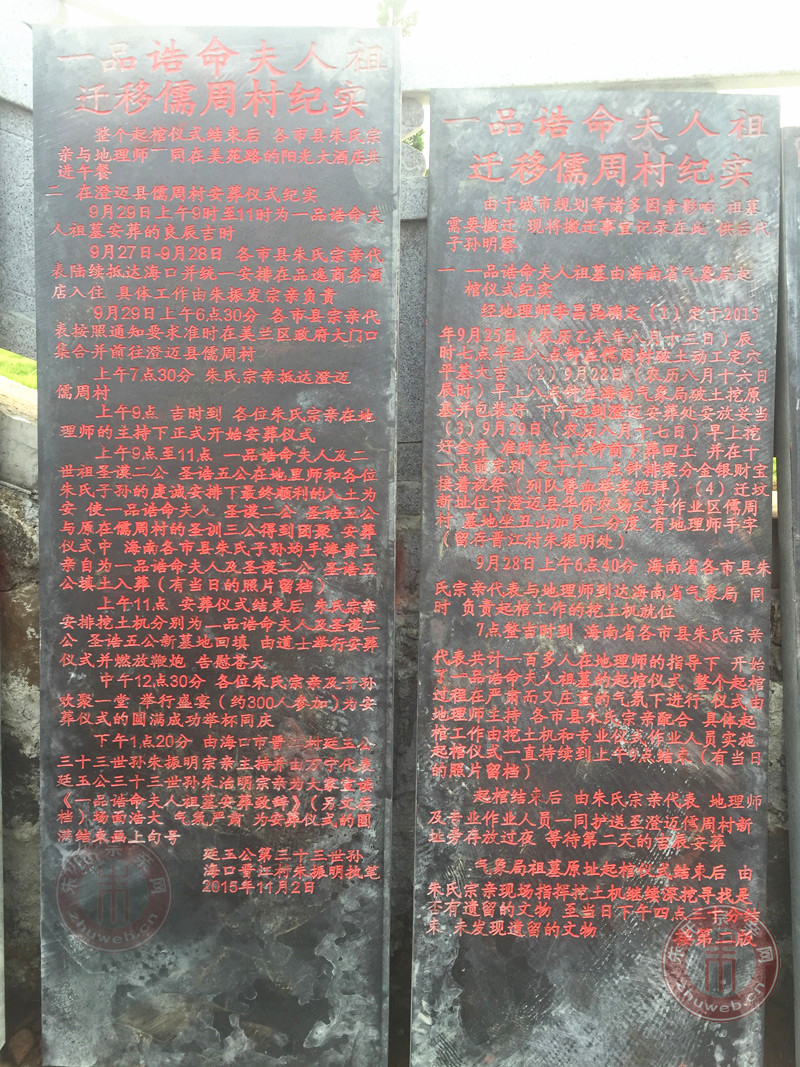 一品诰命夫人祖
迁移儒周村纪实
由于城市规划等诸多因素影响 祖墓
需要搬迁 现将搬迁事宜记录在此 供后代
子孙明察
一 一品诰命夫人祖墓由海南省气象局起
棺仪式纪实
经地理师李昌昆确定（1）定于2015
年9月25日（农历乙未年八月十三日）辰
时七点半至八点钟在儒周村破土动工定穴
平基大吉 （2）9月28日（农历八月十六日
辰时）早上八点钟在海南气象局破土挖原
墓并包装好 下午运到澄迈安葬处安放妥当
（3）9月29日（农历八月十七日）早上挖
好金井 准时在十点钟前下葬回土 并在十
一点前完别 定于十一点钟排棠分金银财宝
接着祝祭（列队餐血举孝跪拜）（4）迁坟
新址位于澄迈县华侨农场文音作业区儒周
村 墓地坐丑山加艮二分度 有地理师手字
（留存晋江村朱振明处）
9月28日上午6点40分 海南省各市县朱
氏宗亲代表与地理师到达海南省气象局 同
时 负责起棺工作的挖土机就位
7点整吉时到 海南省各市县朱氏宗亲
代表共计一百多人在地理师的指导下 开始
了一品诰命夫人祖墓的起棺仪式 整个起棺
过程在严肃而又庄重的气氛下进行 仪式由
地理师主持 各市县朱氏宗亲配合 具体起
棺工作由挖土机和专业仪式作业人员实施
起棺仪式一直持续到上午9点结束（有当日
的照片留档）
起棺结束后 由朱氏宗亲代表 地理师
及专业作业人员一同护送至澄迈儒周村新
址旁存放过夜 等待第二天的吉辰安葬
气象局祖墓原址起棺仪式结束后 由
朱氏宗亲现场指挥挖土机继续深挖寻找是
否有遗留的文物 至当日下午四点三十分结
束 未发现遗留的文物
接第二版
一品诰命夫人祖
迁移儒周村纪实
整个起棺仪式结束后 各市县朱氏宗
亲与地理师一同在美苑路的阳光大酒店共
进午餐
二 在澄迈县儒周村安葬仪式纪实
9月29日上午9时至11时为一品诰命夫
人祖墓安葬的良辰吉时
9月27日-9月28日 各市县朱氏宗亲代
表陆续抵达海口并统一安排在品逸商务酒
店入住 具体工作由朱振发宗亲负责
9月29日上午6点30分 各市县宗亲代
表按照通知要求准时在美兰区政府大门口
集合并前往澄迈县儒周村
上午7点30分 朱氏宗亲抵达澄迈
儒周村
上午9点 吉时到 各位朱氏宗亲在地
理师的主持下正式开始安葬仪式
上午9点至11点 一品诰命夫人及二
世祖圣谟二公 圣诰五公在地里师和各位
朱氏子孙的虔诚安排下最终顺利的入土为
安 使一品诰命夫人 圣谟二公 圣诰五公
与原在儒周村的圣训三公得到团聚 安葬
仪式中 海南各市县朱氏子孙均手捧黄土
亲自为一品诰命夫人及圣谟二公 圣诰五
公填土入葬（有当日的照片留档）
上午11点 安葬仪式结束后 朱氏宗亲
安排挖土机分别为一品诰命夫人及圣谟二
公 圣诰五公新墓地回填 由道士举行安葬
仪式并燃放鞭炮 告慰苍天
中午12点30分 各位朱氏宗亲及子孙
欢聚一堂 举行盛宴（约300人参加）为安
葬仪式的圆满成功举杯同庆
下午1点20分 由海口市晋江村廷玉公
三十三世孙朱振明宗亲主持并由万宁代表
廷玉公三十三世孙朱治明宗亲为大家宣读
《一品诰命夫人祖墓安葬致辞》（另文存
档）场面浩大 气氛严肃 为安葬仪式的圆
满结束画上句号
廷玉公第三十三世孙
海口晋江村朱振明执笔
2015年11月2日
朱氏宗亲网
zhuweb.cn
朱氏宗亲网
zhuweb.cn